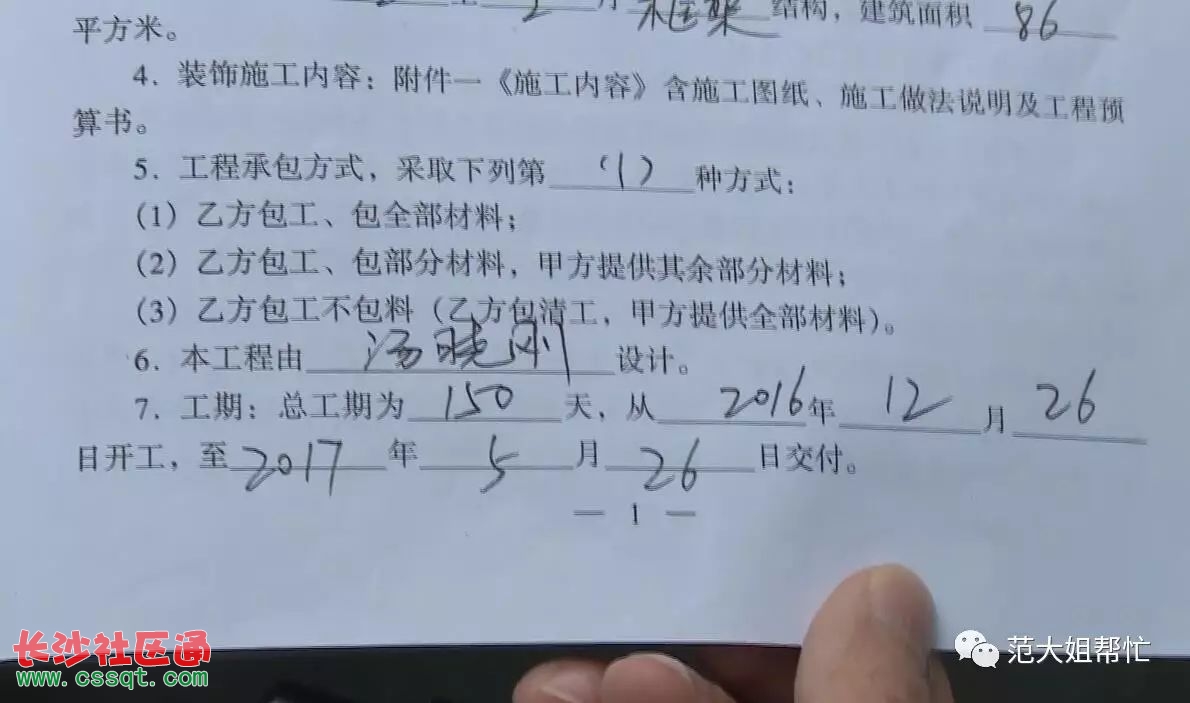 2 月 框架 结构，建筑面积 86
平方米。
4．装饰施工内容：附件一《施工内容》含施工图纸、施工做法说明及工程预
算书。
5．工程承包方式，采取下列第 （1） 种方式：
（1）乙方包工、包全部材料；
（2）乙方包工、包部分材料，甲方提供其余部分材料；
（3）乙方包工不包料（乙方包清工，甲方提供全部材料）。
6．本工程由 汤晓刚 设计。
7．工期：总工期为 150 天，从 2016 年 12 月 26
日开工，至 2017 年 5 月 26 日交付。
— 1 —
长沙社区通
www.cssqt.com
范大姐帮忙